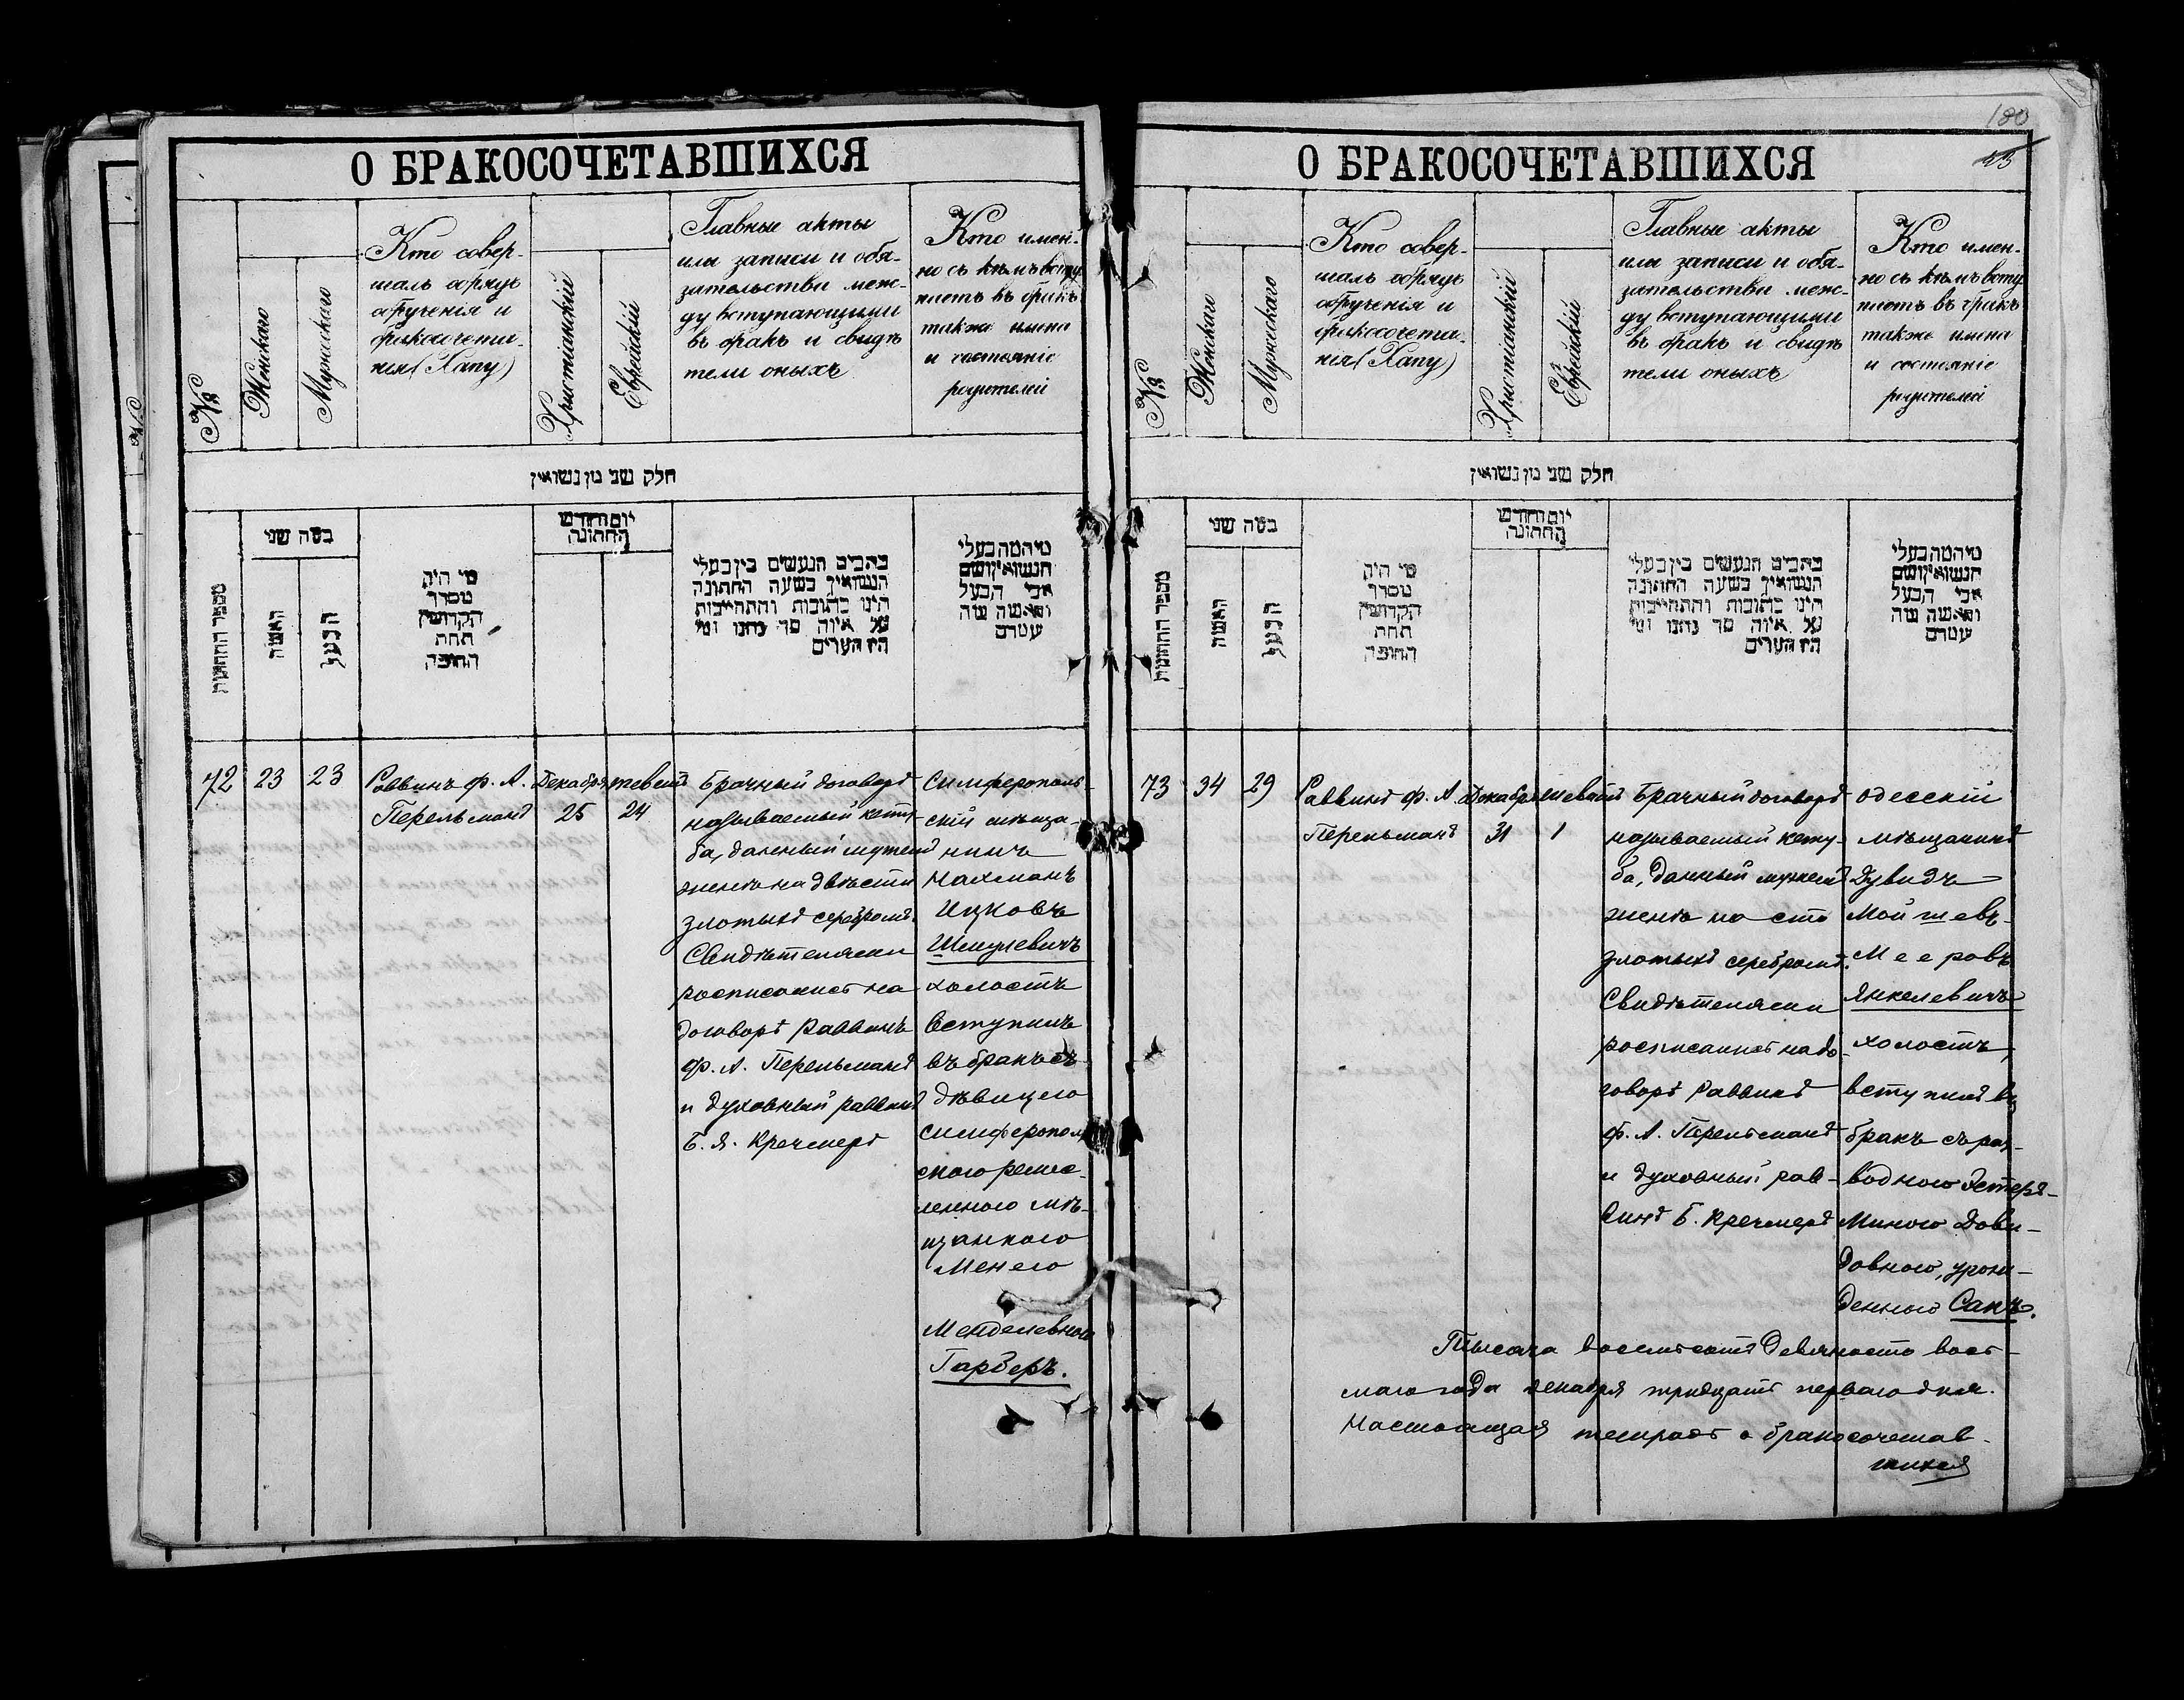 О БРАКОСОЧЕТАВШИХСЯ
№
Женскаго
Мужескаго
Кто совер-
шалъ обрядъ
обрученія и
бракосочета-
нія (Хапу)
Христіанскій
Еврейскій
Главные акты
или записи и обя-
зательства меж-
ду вступающими
въ бракъ и свидѣ
тели оныхъ
Кто имен-
но съ кѣмъ всту
паетъ въ бракъ
также имена
и состояніе
родителей
חלק שני מן נשואין
מספר החתונות
במה שני
האשה
הבעל
מי היה
מסדר
הקדושין
תחת
החופה
יום וחודש
החתונה
כתבים הנעשים בין בעלי
הנשואין בשעה החתונה
הינו כתובות והתחייבות
על איזה סך נתנו ומי
היו העדים
מי המה בעלי
הנשואין ושם
אבי הבעל
והאשה ומה
עטרם
72
23
23
Раввинъ Ф. А.
Перельманъ
Декабря
25
тевешъ
24
Брачный договоръ
называемый кету-
ба, данный мужемъ
женѣ на двѣсти
злотыхъ серебромъ.
Свидѣтелями
росписались на
договорѣ Раввинъ
Ф. А. Перельманъ
и духовный раввинъ
Б. Я. Кречмеръ
Симферополь-
скій мѣща-
нинъ
Нахманъ
Ицковъ
Шмулевичъ
холостъ
вступилъ
въ бракъ съ
дѣвицею
симферополь
скою ремес-
ленною мѣ-
щанкою
Менею
Менделевною
Гарберъ.
180
О БРАКОСОЧЕТАВШИХСЯ
№
Женскаго
Мужескаго
Кто совер-
шалъ обрядъ
обрученія и
бракосочета-
нія (Хапу)
Христіанскій
Еврейскій
Главные акты
или записи и обя-
зательства меж-
ду вступающими
въ бракъ и свидѣ
тели оныхъ
Кто имен-
но съ кѣмъ всту
паетъ въ бракъ
также имена
и состояніе
родителей
חלק שני מן נשואין
מספר החתונות
במה שני
האשה
הבעל
מי היה
מסדר
הקדושין
תחת
החופה
יום וחודש
החתונה
כתבים הנעשים בין בעלי
הנשואין בשעה החתונה
הינו כתובות והתחייבות
על איזה סך נתנו ומי
היו העדים
מי המה בעלי
הנשואין ושם
אבי הבעל
והאשה ומה
עטרם
73
34
29
Раввинъ Ф. А.
Перельманъ
Декабря
31
Шевашъ
1
Брачный договоръ
называемый кету-
ба, данный мужемъ
женѣ на сто
злотыхъ серебромъ.
Свидѣтелями
росписались на до-
говорѣ Раввинъ
Ф. А. Перельманъ
и духовный рав-
винъ Б. Кречмеръ
Одесскій
мѣщанинъ
Дувидъ
Мойшевъ-
Мееровъ
Янкелевичъ
холостъ,
вступилъ въ
бракъ съ раз-
водною Эстерѣ-
Миною Дови-
довною, урож-
денною Сакъ.
Тысяча восемьсотъ девяносто вось-
маго года декабря тридцать перваго дня.
Настоящая тетрадь о бракосочетав-
шихся